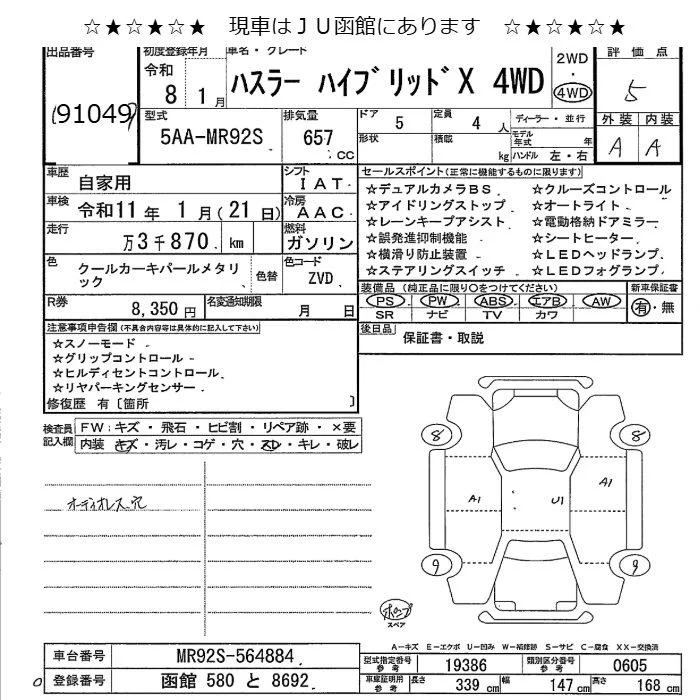 ☆★☆★☆★ 現車はＪＵ函館にあります ☆★☆★☆★
出品番号
91049
初度登録年月
令和
8 1月
車名・グレード
ハスラー ハイブリッドX 4WD
2WD
・
4WD
評価点
5
外装 内装
A A
型式
5AA-MR92S
排気量
657
CC
ドア
5
定員
4 人
形状
積載
kg
ディーラー・並行
モデル年式
年
ハンドル 左・右
車歴
自家用
シフト
IAT
車検
令和11年 1月(21日)
冷房
AAC
走行
万3千870 km
燃料
ガソリン
色
クールカーキパールメタリ
ック
色替
色コード
ZVD
R券
8,350円
名変通知期限
月 日
セールスポイント(正常に機能するものに限ります)
☆デュアルカメラBS ☆クルーズコントロール
☆アイドリングストップ ☆オートライト
☆レーンキープアシスト ☆電動格納ドアミラー
☆誤発進抑制機能 ☆シートヒーター
☆横滑り防止装置 ☆LEDヘッドランプ
☆ステアリングスイッチ ☆LEDフォグランプ
装備品(純正品に限り○をつけてください)
新車保証書
PS PW ABS エアB AW
SR ナビ TV カワ
有・無
後日品
保証書・取説
注意事項申告欄(不具合内容等は具体的に記入して下さい)
☆スノーモード
☆グリップコントロール
☆ヒルディセントコントロール
☆リヤパーキングセンサー
修復歴 有〔箇所 〕
検査員
記入欄
FW:キズ・飛石・ヒビ割・リペア跡・×要
内装・キズ・汚レ・コゲ・穴・スレ・キレ・破レ
オーディオレス穴
8 8
A1 U1 A1
9 9
ホップ
スペア
A－キズ E－エクボ U－凹み W－補修跡 S－サビ C－腐食 XX－交換済
車台番号
MR92S-564884
登録番号
函館 580 と 8692
型式指定番号
参考
19386
類別区分番号
参考
0605
車庫証明用
参考
長さ
339 cm
幅
147 cm
高さ
168 cm